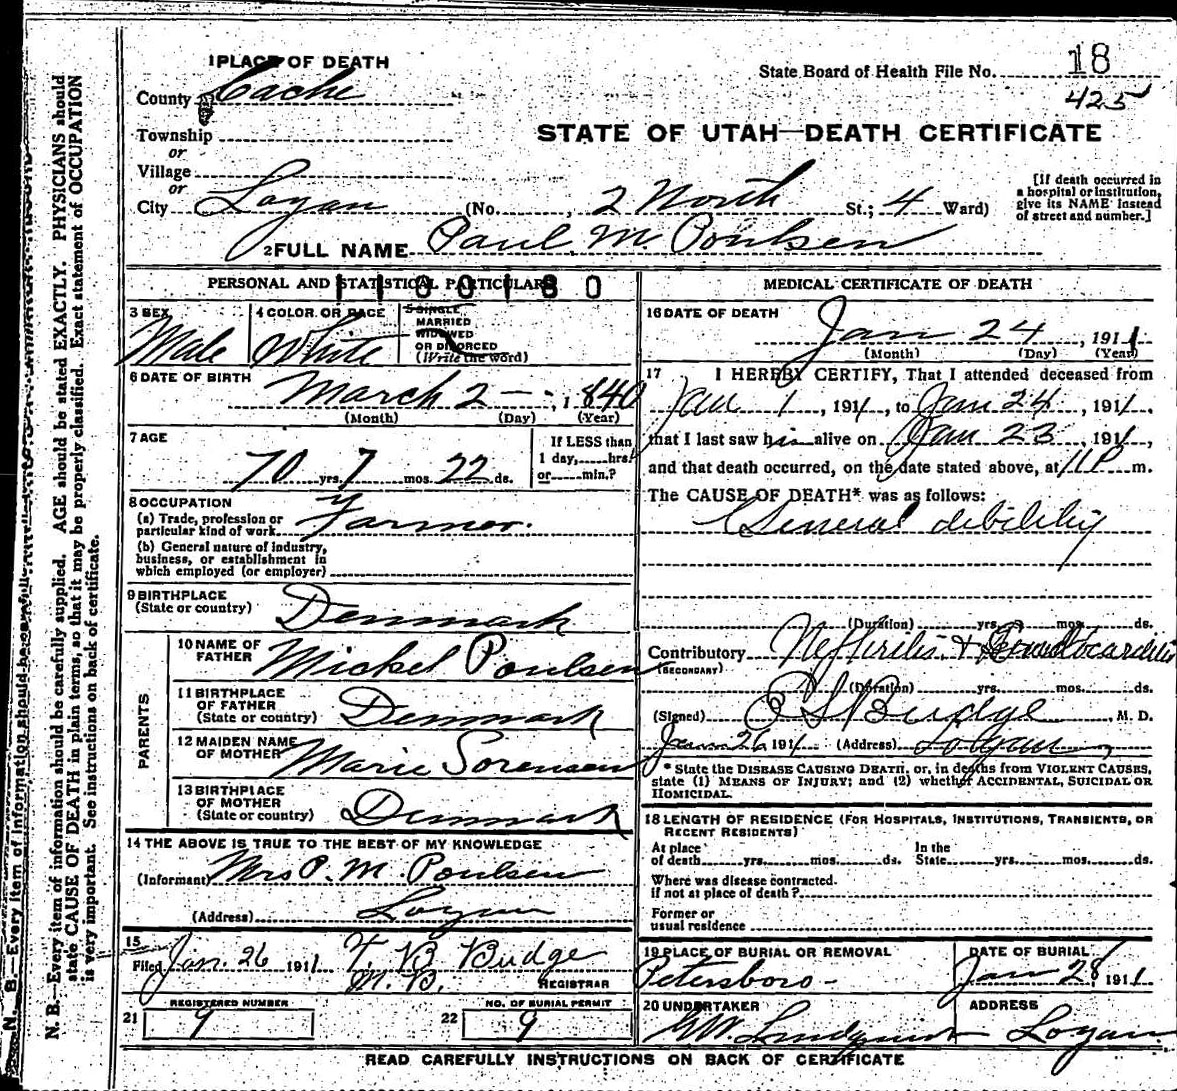 N. B.—Every item of information should be carefully supplied. AGE should be stated EXACTLY. PHYSICIANS should
state CAUSE OF DEATH in plain terms, so that it may be properly classified. Exact statement of OCCUPATION
is very important. See instructions on back of certificate.
1 PLACE OF DEATH
County Cache
Township
or
Village
or
City Logan (No. , 2 North St.; 4 Ward)
State Board of Health File No. 18
425
STATE OF UTAH—DEATH CERTIFICATE
[If death occurred in
a hospital or institution,
give its NAME instead
of street and number.]
2 FULL NAME Paul M. Poulsen
PERSONAL AND STATISTICAL PARTICULARS
3 SEX
Male
4 COLOR OR RACE
White
5 SINGLE
MARRIED
WIDOWED
OR DIVORCED
(Write the word)
6 DATE OF BIRTH
March 2 — , 1840
(Month) (Day) (Year)
7 AGE
70 yrs. 7 mos. 22 ds.
If LESS than
1 day,.....hrs.
or.....min.?
8 OCCUPATION
(a) Trade, profession or
particular kind of work Farmer.
(b) General nature of industry,
business, or establishment in
which employed (or employer)
9 BIRTHPLACE
(State or country) Denmark
PARENTS
10 NAME OF
FATHER Mickel Poulsen
11 BIRTHPLACE
OF FATHER
(State or country) Denmark
12 MAIDEN NAME
OF MOTHER Marie Sorensen
13 BIRTHPLACE
OF MOTHER
(State or country) Denmark
14 THE ABOVE IS TRUE TO THE BEST OF MY KNOWLEDGE
(Informant) Mrs P. M. Poulsen
(Address) Logan
15
Filed Jan. 26 1911 T. B. Budge
M. D. REGISTRAR
REGISTERED NUMBER
21 9
NO. OF BURIAL PERMIT
22 9
MEDICAL CERTIFICATE OF DEATH
16 DATE OF DEATH
Jan 24 , 1911
(Month) (Day) (Year)
17 I HEREBY CERTIFY, That I attended deceased from
Jan 1 , 1911, to Jan 24 , 1911,
that I last saw him alive on Jan 23 , 1911,
and that death occurred, on the date stated above, at 11 P m.
The CAUSE OF DEATH* was as follows:
General debility
(Duration) yrs. mos. ds.
Contributory Neffiritis &
(SECONDARY)
(Duration) yrs. mos. ds.
(Signed) Budge , M. D.
Jan 26 1911 (Address) Logan
* State the DISEASE CAUSING DEATH, or, in deaths from VIOLENT CAUSES,
state (1) MEANS OF INJURY; and (2) whether ACCIDENTAL, SUICIDAL OR
HOMICIDAL.
18 LENGTH OF RESIDENCE (FOR HOSPITALS, INSTITUTIONS, TRANSIENTS, OR
RECENT RESIDENTS)
At place
of death yrs. mos. ds.
In the
State yrs. mos. ds.
Where was disease contracted.
if not at place of death?
Former or
usual residence
19 PLACE OF BURIAL OR REMOVAL
Petersboro -
DATE OF BURIAL
Jan 28, 1911
20 UNDERTAKER
ADDRESS
Logan.
READ CAREFULLY INSTRUCTIONS ON BACK OF CERTIFICATE